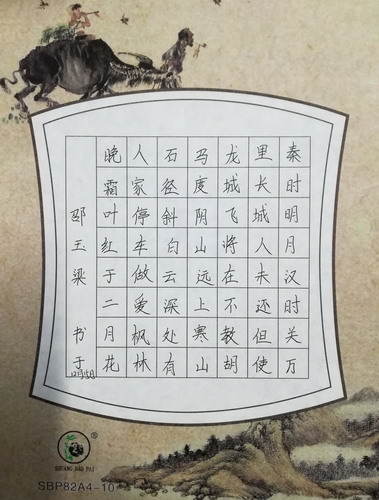 秦时明月汉时关万
里长城人未还但使
龙城飞将在不教胡
马度阴山远上寒山
石径斜白云深处有
人家停车做爱枫林
晚霜叶红于二月花
邵玉梁 书于
SHUANG BAO PAI
SBP82A4-10